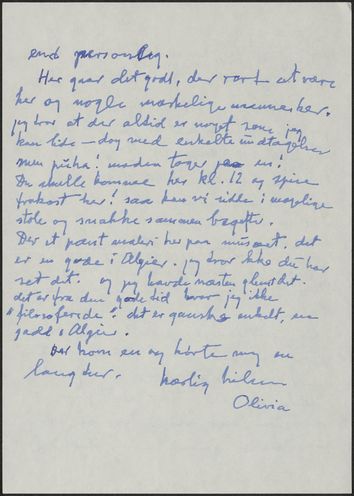 end personlig.
Her gaar det godt, der rart at være
her og nogle mærkelige mennesker.
jeg tror at der altid er noget som jeg
kan lide – dog med enkelte undtagelser
men puha! maden tager en!
Du skulle komme her kl. 12 og spise
frokost her! saa kan vi sidde i magelige
stole og snakke sammen bagefter.
Der et pænt maleri her paa museet, det
er en gade i Algier. jeg tror ikke du har
set det. og jeg havde næsten glemt det.
det er fra den gode tid hvor jeg ikke
"filosoferede"! det er ganske enkelt, en
gade i Algier.
Der kom en og kørte mig en
lang tur. kærlig hilsen
Olivia